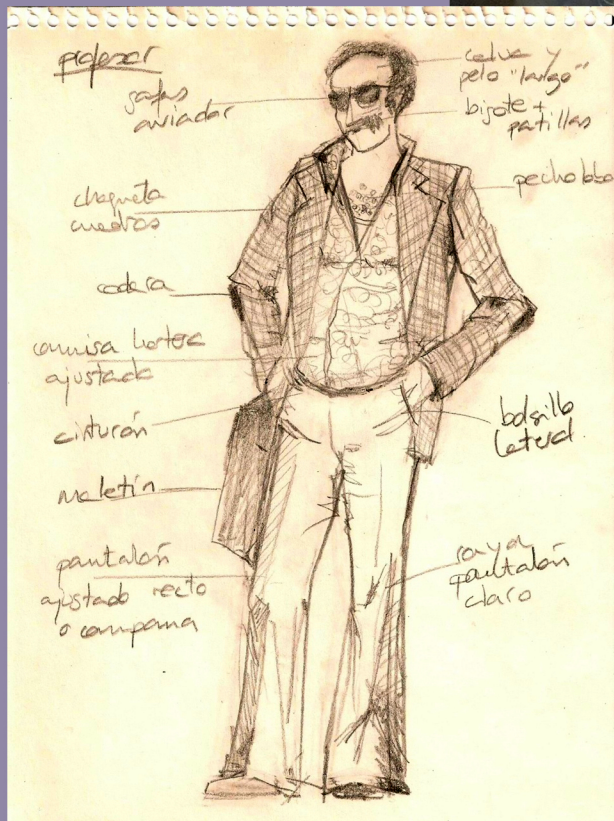 profesor
gafas
aviador
chaqueta
cuadros
codera
camisa hortera
ajustada
cinturón
maletín
pantalón
ajustado recto
o campana
calva y
pelo "largo"
bigote +
patillas
pecho lobo
bolsillo
lateral
raya
pantalón
claro